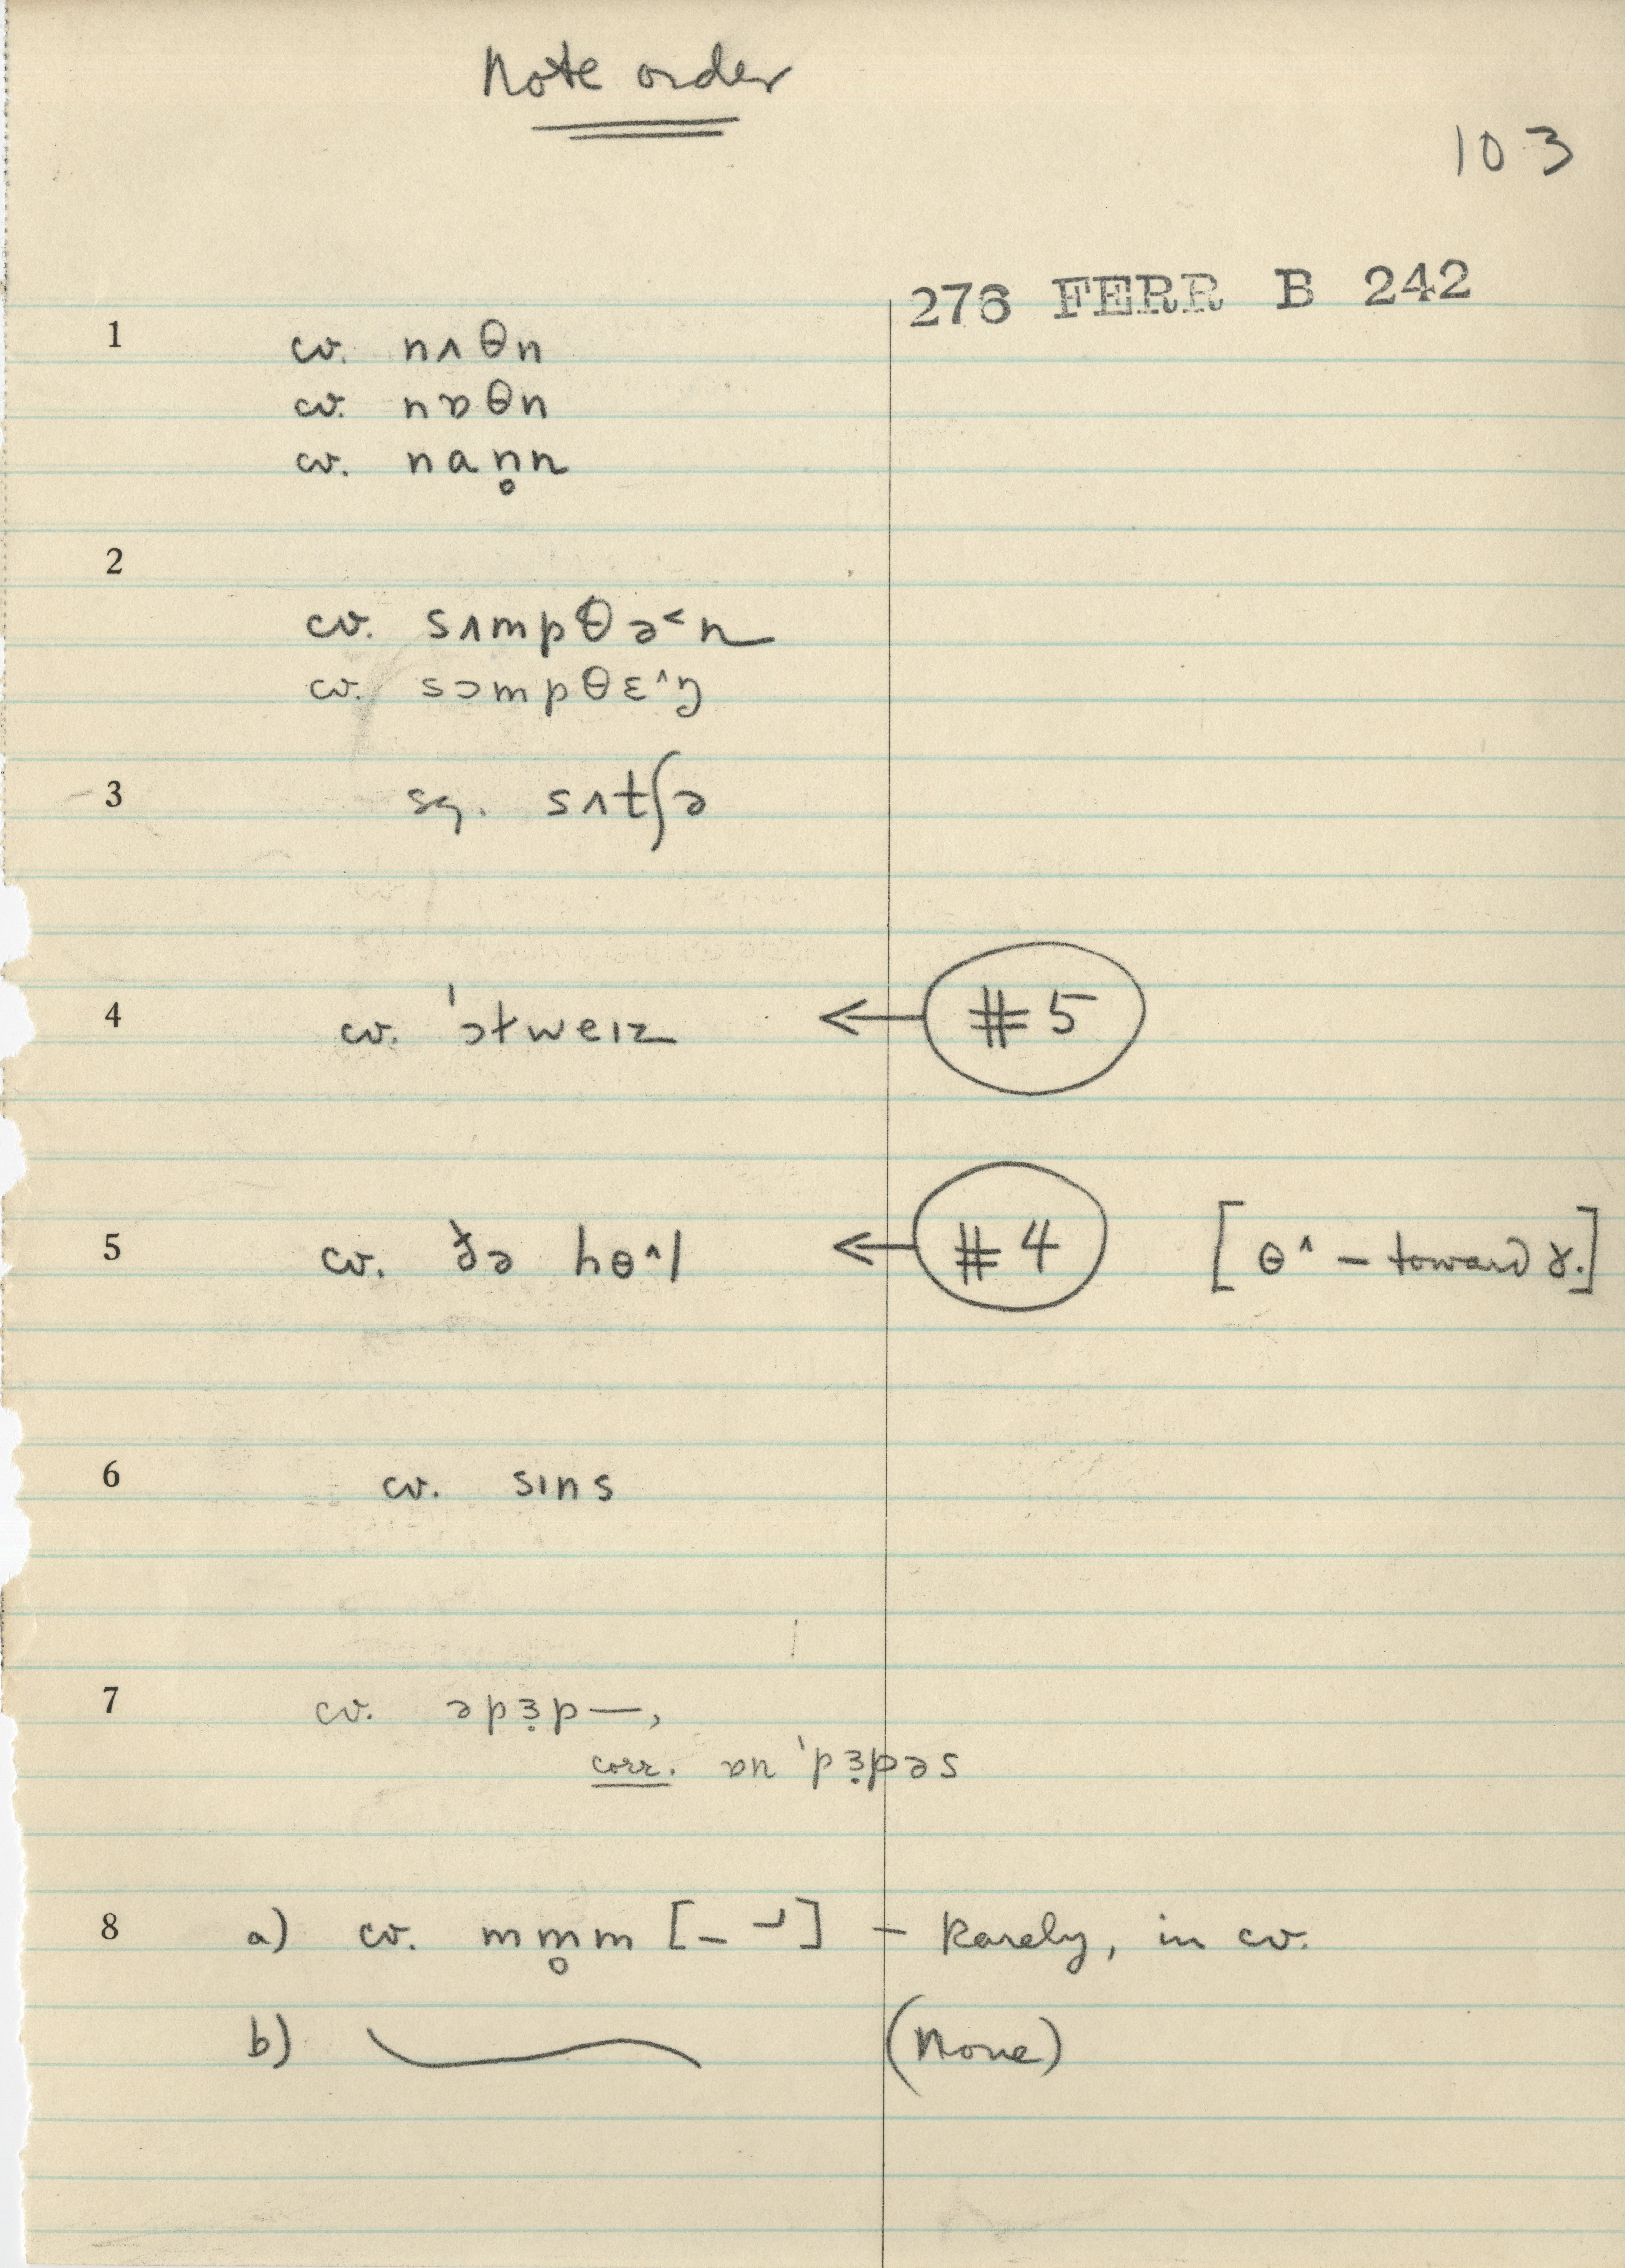 Note order
103
276 FERR B 242
1 cv. nʌθn
cv. nɒθn
cv. nan̥n
2
cv. sʌmpθə˂n
cv. sɔmpθɛ˄ŋ
3 sq. sʌtʃə
4 cv. ˈɔtweɪz ← #5
5 cv. ðə hɵ˄l ← #4 [ɵ˄ – toward ɤ.]
6 cv. sɪns
7 cv. əpɜ̣p—,
corr. ɒn ˈpɜ̣pəs
8 a) cv. mm̥m [– ] – Rarely, in cv.
b) (None)